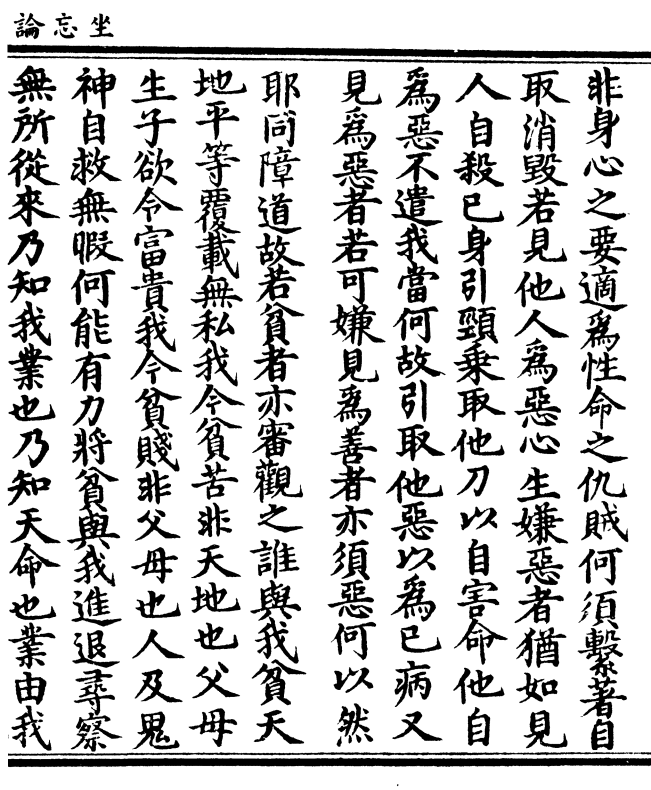 坐忘論
非身心之要適爲性命之仇賊何須繫著自
取消毀若見他人爲惡心生嫌惡者猶如見
人自殺己身引頸乗取他刀以自害命他自
爲惡不遣我當何故引取他惡以爲己病又
見爲惡者若可嫌見爲善者亦須惡何以然
耶同障道故若貧者亦審觀之誰與我貧天
地平等覆載無私我今貧苦非天地也父母
生子欲令富貴我今貧賤非父母也人及鬼
神自救無暇何能有力將貧與我進退尋察
無所從來乃知我業也乃知天命也業由我